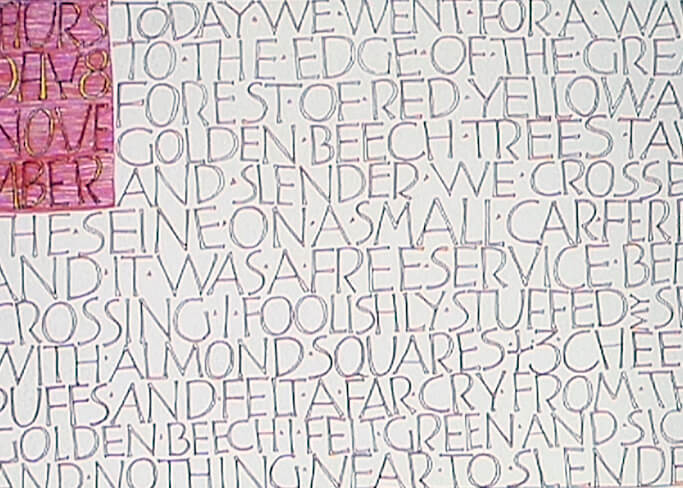 HURS
DAY 8
NOVE
MBER
TODAY·WE·WENT·FOR·A·WA
TO·THE·EDGE·OF·THE·GRE
FOREST·OF·RED·YELLOW·A
GOLDEN·BEECH·TREES·TA
AND·SLENDER·WE·CROSSE
HE·SEINE·ON·A·SMALL·CARFER
AND·IT·WAS·A·FREE·SERVICE·BEF
CROSSING·I·FOOLISHLY·STUFFED MY S
WITH·ALMOND SQUARES+3·CHEE
PUFFS·AND FELT·A FAR·CRY·FROM·TH
GOLDEN·BEECH·I FELT·GREEN AND·SIC
AND·NOTHING·NEAR·TO·SLENDE